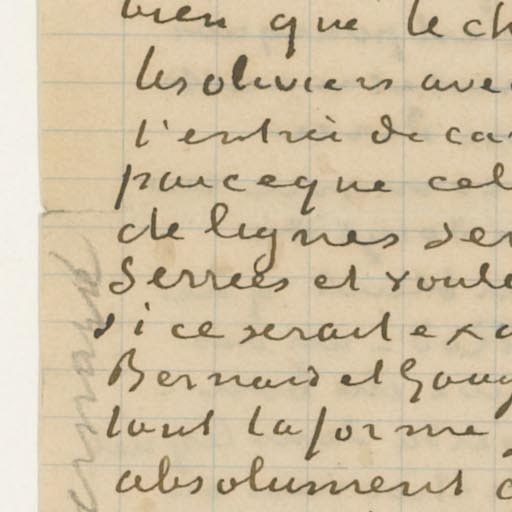 bien que le ch
les oliviers ave
l'entrée de ca
parceque cel
de lignes ser
serrées et roule
si ce serait exa
Bernard et Gaug
tout la forme
absolument